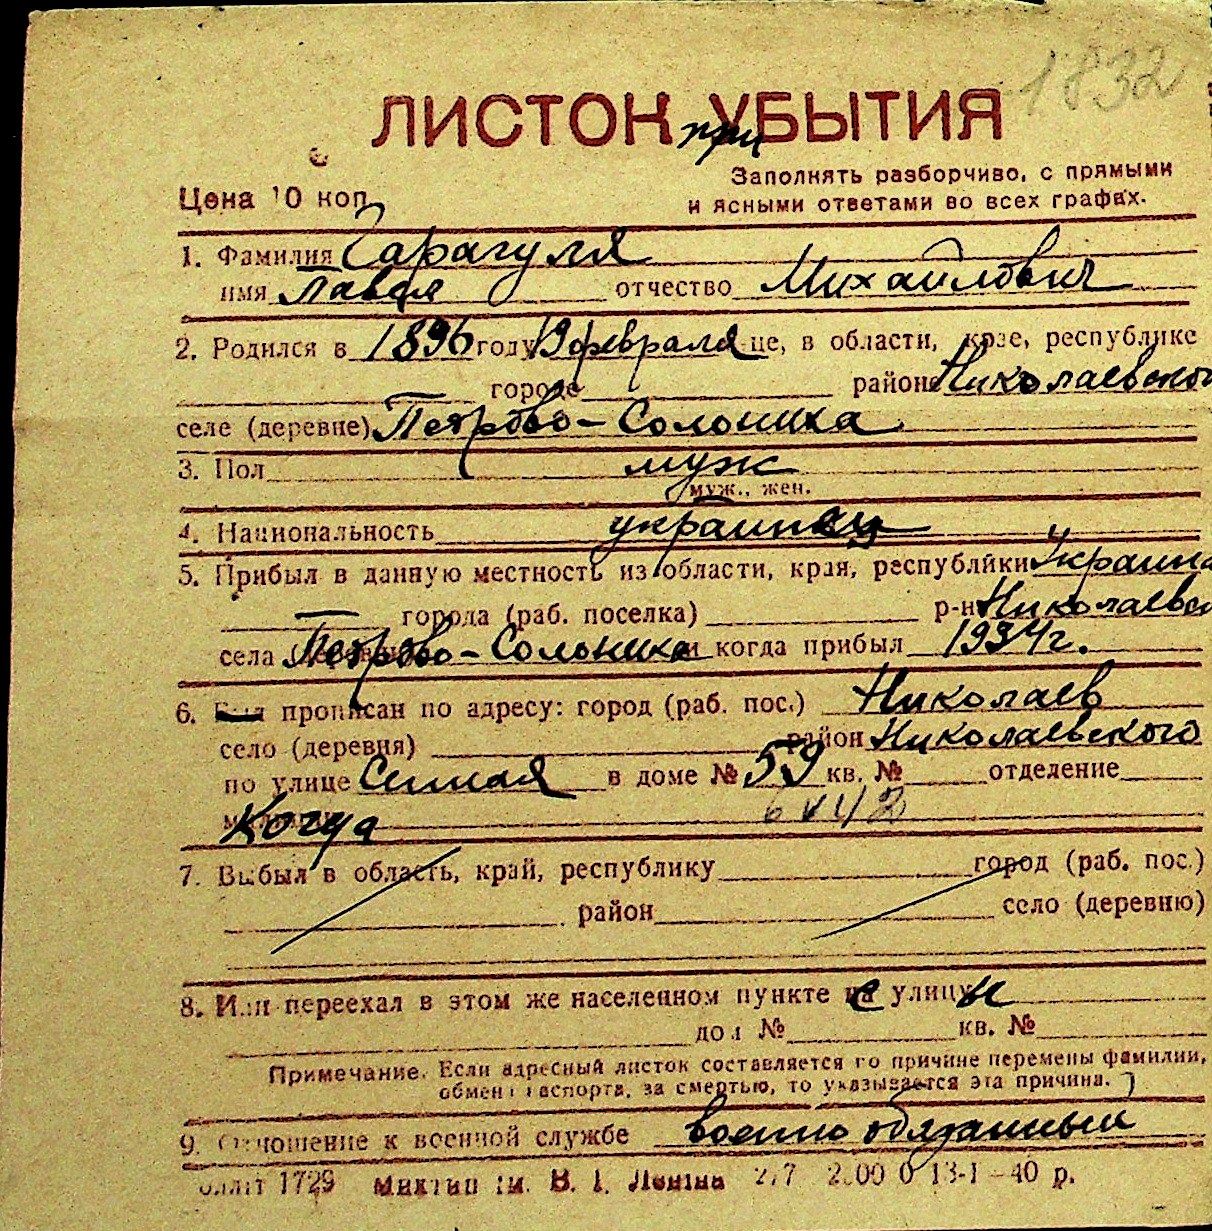 1832
ЛИСТОК УБЫТИЯ
при
Заполнять разборчиво, с прямыми
Цена 10 коп.
и ясными ответами во всех графах.
1. Фамилия Гарагуля
имя Павел отчество Михайлович
2. Родился в 1896 году 19 февраля це, в области, крае, республике
городе районе Николаевского
селе (деревне) Петрово-Солониха
3. Пол муж
муж., жен.
4. Национальность украинец
5. Прибыл в данную местность из области, края, республики Украина
города (раб. поселка) р-н Николаевск
села Петрово-Солониха и когда прибыл 1934 г.
6. Был прописан по адресу: город (раб. пос.) Николаев
село (деревня) район Николаевского
по улице Сенная в доме № 59 кв. № отделение
Когда
7. Выбыл в область, край, республику город (раб. пос.)
район село (деревню)
8. Или переехал в этом же населенном пункте с улицы
дом № кв. №
Примечание. Если адресный листок составляется по причине перемены фамилии,
обмена паспорта, за смертью, то указывается эта причина.
9. Отношение к военной службе военно обязанный
1729 им. В. І. Леніна 13-1-40 р.